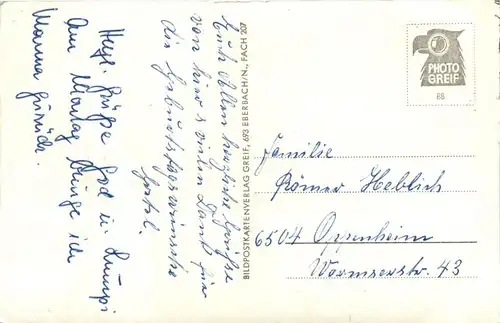 Euch Allen herzliche Grüße
von hier u vielen Dank für
die Geburtstagswünsche
Herzl. Grüße
Am Montag bringe ich
Mama zurück.
BILDPOSTKARTENVERLAG GREIF, 693 EBERBACH/N., FACH 207
PHOTO
GREIF
88
Familie
Römer Heblich
6504 Oppenheim
Wormserstr. 43